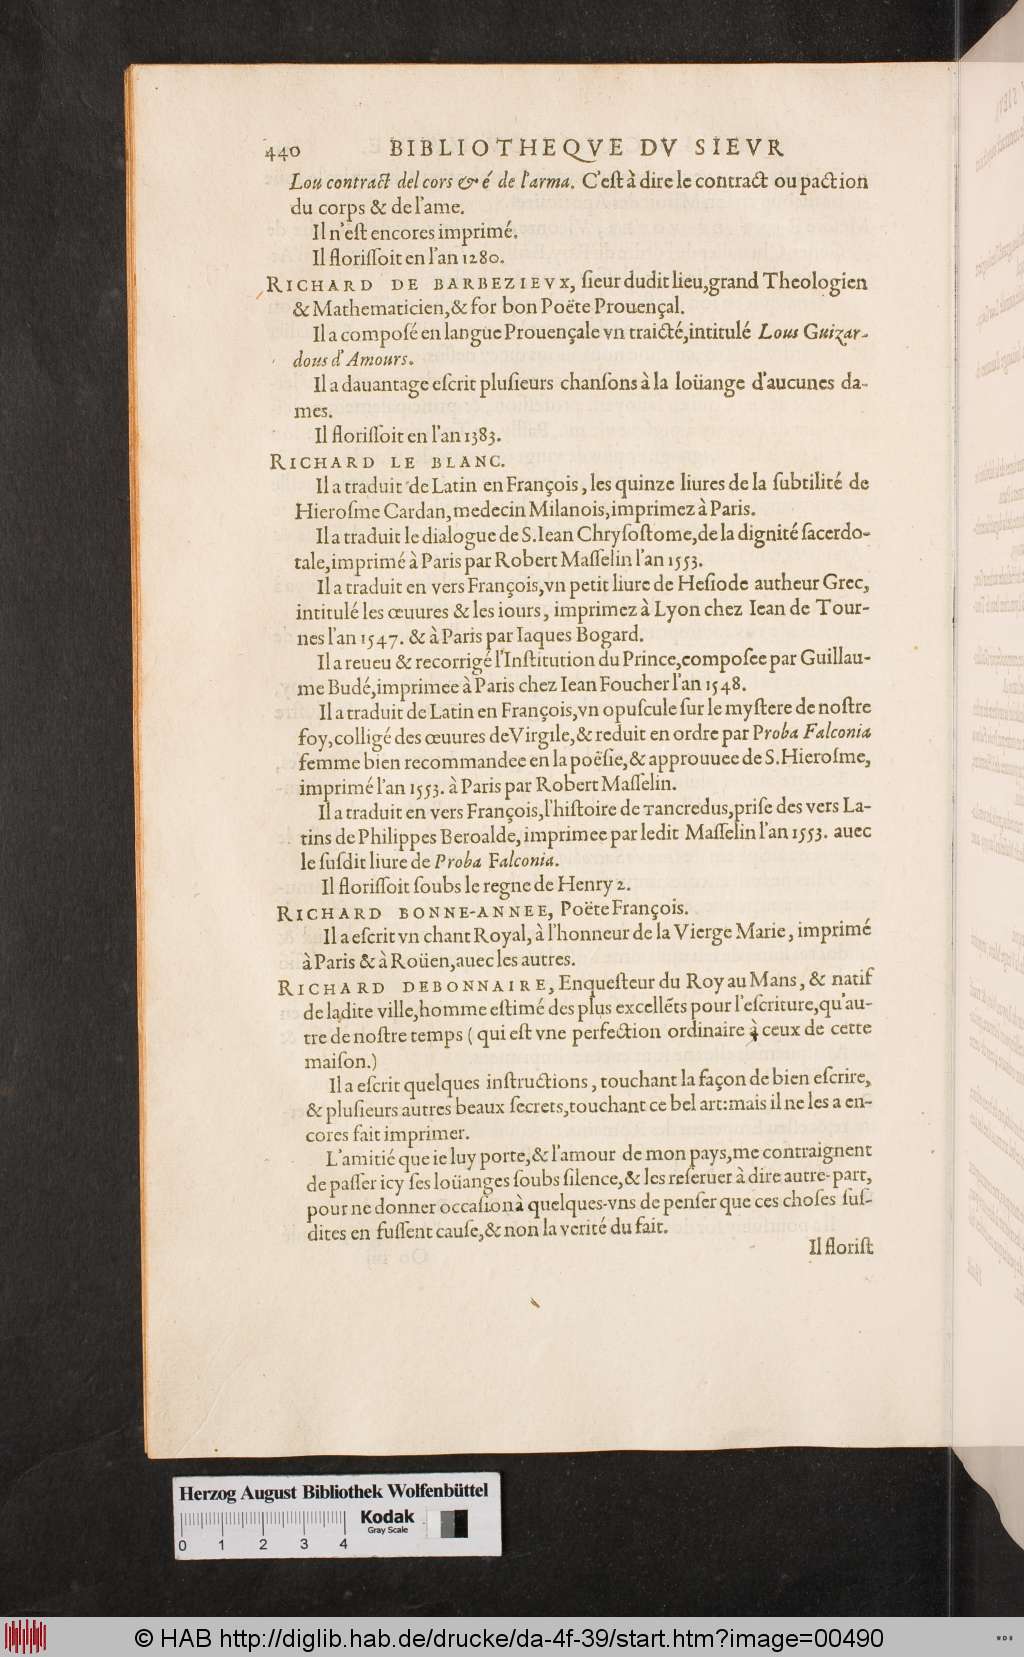 440 BIBLIOTHEQVE DV SIEVR
Lou contract del cors & é de l'arma. C'eſt à dire le contract ou paction
du corps & de l'ame.
Il n'eſt encores imprimé.
Il floriſſoit en l'an 1280.
RICHARD DE BARBEZIEVX, ſieur dudit lieu, grand Theologien
& Mathematicien, & for bon Poëte Prouençal.
Il a compoſé en langue Prouençale vn traicté, intitulé Lous Guizar-
dous d'Amours.
Il a dauantage eſcrit pluſieurs chanſons à la loüange d'aucunes da-
mes.
Il floriſſoit en l'an 1383.
RICHARD LE BLANC.
Il a traduit de Latin en François, les quinze liures de la ſubtilité de
Hieroſme Cardan, medecin Milanois, imprimez à Paris.
Il a traduit le dialogue de S. Iean Chryſoſtome, de la dignité ſacerdo-
tale, imprimé à Paris par Robert Maſſelin l'an 1553.
Il a traduit en vers François, vn petit liure de Heſiode autheur Grec,
intitulé les œuures & les iours, imprimez à Lyon chez Iean de Tour-
nes l'an 1547. & à Paris par Iaques Bogard.
Il a reueu & recorrigé l'Inſtitution du Prince, compoſee par Guillau-
me Budé, imprimee à Paris chez Iean Foucher l'an 1548.
Il a traduit de Latin en François, vn opuſcule ſur le myſtere de noſtre
foy, colligé des œuures de Virgile, & reduit en ordre par Proba Falconia
femme bien recommandee en la poëſie, & approuuee de S. Hieroſme,
imprimé l'an 1553. à Paris par Robert Maſſelin.
Il a traduit en vers François, l'hiſtoire de Tancredus, priſe des vers La-
tins de Philippes Beroalde, imprimee par ledit Maſſelin l'an 1553. auec
le ſuſdit liure de Proba Falconia.
Il floriſſoit ſoubs le regne de Henry 2.
RICHARD BONNE-ANNEE, Poëte François.
Il a eſcrit vn chant Royal, à l'honneur de la Vierge Marie, imprimé
à Paris & à Roüen, auec les autres.
RICHARD DEBONNAIRE, Enqueſteur du Roy au Mans, & natif
de ladite ville, homme eſtimé des plus excellẽts pour l'eſcriture, qu'au-
tre de noſtre temps ( qui eſt vne perfection ordinaire à ceux de cette
maiſon.)
Il a eſcrit quelques inſtructions, touchant la façon de bien eſcrire,
& pluſieurs autres beaux ſecrets, touchant ce bel art: mais il ne les a en-
cores fait imprimer.
L'amitié que ie luy porte, & l'amour de mon pays, me contraignent
de paſſer icy ſes loüanges ſoubs ſilence, & les reſeruer à dire autre-part,
pour ne donner occaſion à quelques-vns de penſer que ces choſes ſuſ-
dites en fuſſent cauſe, & non la verité du fait.
Il floriſt
Herzog August Bibliothek Wolfenbüttel
0 1 2 3 4
Kodak
Gray Scale
© HAB http://diglib.hab.de/drucke/da-4f-39/start.htm?image=00490